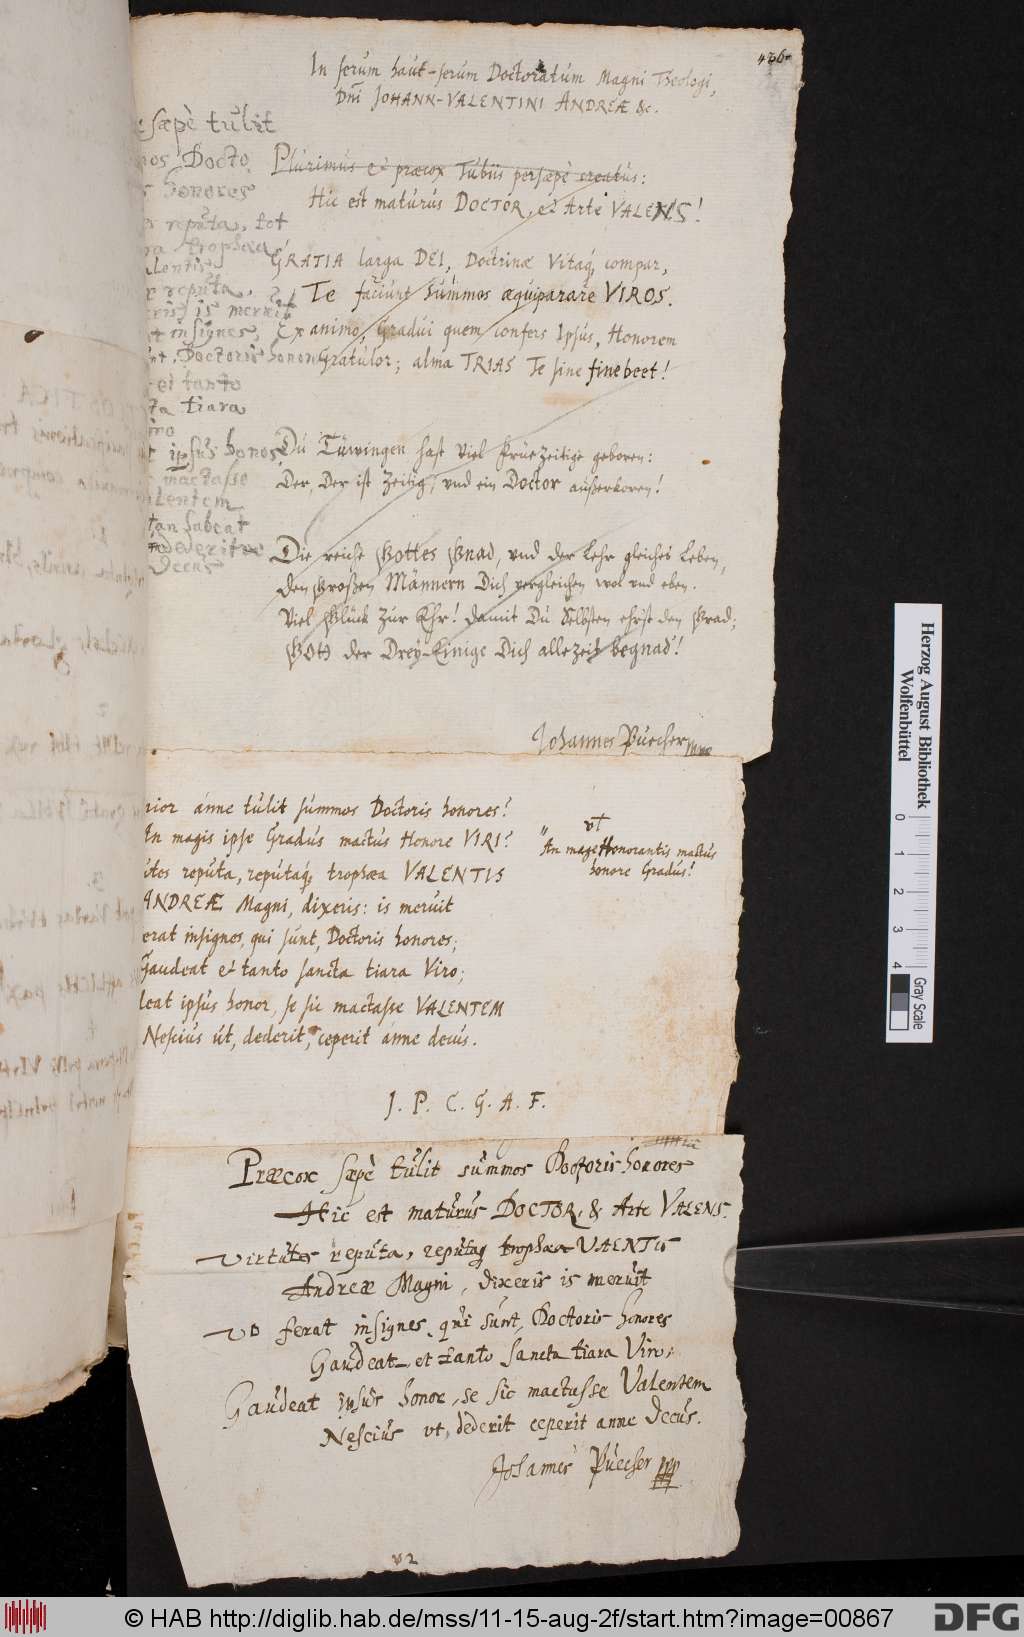 436
In serum haut-serum Doctoratum Magni Theologi,
Dni JOHANN-VALENTINI ANDREÆ &c.
Plurimus et præcox Tubiis persæpè creatus:
Hic est maturus DOCTOR, et Arte VALENS!
GRATIA larga DEI, Doctrinæ Vitaq, compar,
Te faciunt summos æquiparare VIROS.
Ex animo, Gradui quem confers Ipsus, Honorem
Gratulor; alma TRIAS Te sine fine beet!
Du Tüwingen hast Viel früezeitige geboren:
Der, Der ist Zeitig, vnd ein Doctor außerkoren!
Die reiche Gottes Gnad, vnd der Lehr gleiches Leben,
Den Großen Männern Dich vergleichen wol vnd eben.
Viel Glück zur Ehr! damit Du Selbsten ehrst den Grad;
GOtt der Drey-Einige Dich allezeit begnad'!
Johannes Puecher
sæpè tulit
Docto
honores
reputa, tot
trophæa
alentis
reputa,
is meruit
insignes,
Doctoris honor
et tanto
tiara
ipsus honos
mactasse
alentem
decus
rior anne tulit summos Doctoris honores?
An magis ipse Gradus mactus Honore VIRI?
utes reputa, reputaq, trophæa VALENTIS
ANDREÆ Magni, dixeris: is meruit
erat insignes, qui sunt, Doctoris honores;
Gaudeat et tanto sancta tiara Viro;
deat ipsus honor, se sic mactasse VALENTEM
Nescius ut, dederit, ceperit anne decus.
vt
"An mage Honorantis mactus
honore Gradus!
J. P. C. G. A. F.
Præcox sæpè tulit summos Doctoris honores
Hic est maturus DOCTOR, & Arte VALENS.
Virtutes reputa, reputaq trophæa VALENTIS
Andreæ Magni, dixeris is meruit
Vt ferat insignes, qui sunt, Doctoris honores
Gaudeat et tanto sancta tiara Viro,
Gaudeat ipsus honor, se sic mactasse Valentem
Nescius vt, dederit ceperit anne Decus.
Johannes Puecher
Herzog August Bibliothek
Wolfenbüttel
0 1 2 3 4
Gray Scale
© HAB http://diglib.hab.de/mss/11-15-aug-2f/start.htm?image=00867
DFG